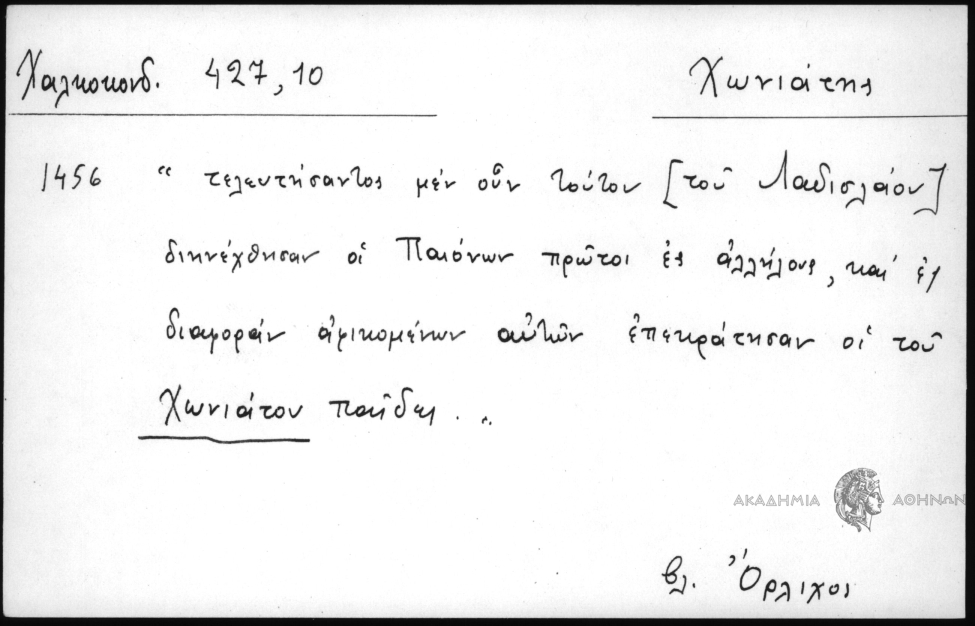 Χαλκοκονδ. 427,10 Χωνιάτης
1456 “ τελευτήσαντος μέν οὖν τούτου [τοῦ Λαδισλάου]
διηνέχθησαν οἱ Παιόνων πρῶτοι ἐς ἀλλήλους, καί ἐς
διαφοράν ἀφικομένων αὐτῶν ἐπεκράτησαν οἱ τοῦ
Χωνιάτου παῖδες . „
ΑΚΑΔΗΜΙΑ ΑΘΗΝΩΝ
βλ. Ὄρλιχοι